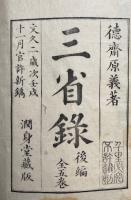 德齋原義著
三省錄
後編
全五卷
文久二歲次壬戌
十一月官許新鐫
潤身堂藏版